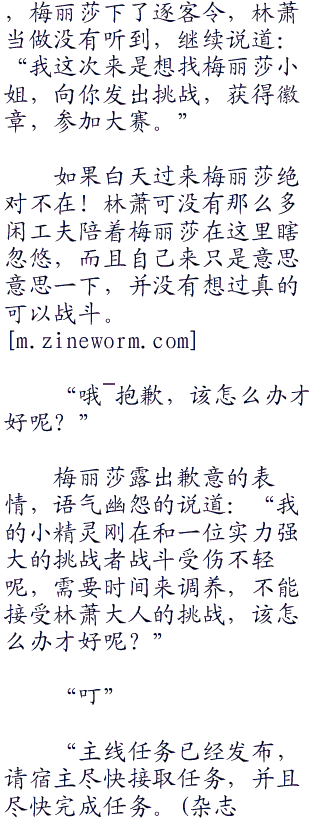 ，梅丽莎下了逐客令，林萧
当做没有听到，继续说道：
“我这次来是想找梅丽莎小
姐，向你发出挑战，获得徽
章，参加大赛。”
如果白天过来梅丽莎绝
对不在！林萧可没有那么多
闲工夫陪着梅丽莎在这里瞎
忽悠，而且自己来只是意思
意思一下，并没有想过真的
可以战斗。
[m.zineworm.com]
“哦¯抱歉，该怎么办才
好呢？”
梅丽莎露出歉意的表
情，语气幽怨的说道：“我
的小精灵刚在和一位实力强
大的挑战者战斗受伤不轻
呢，需要时间来调养，不能
接受林萧大人的挑战，该怎
么办才好呢？”
“叮”
“主线任务已经发布，
请宿主尽快接取任务，并且
尽快完成任务。(杂志